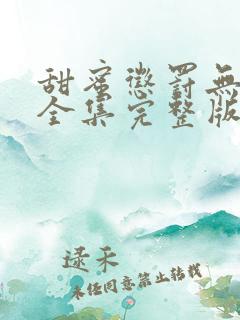 甜蜜懲罰無
全集完整版
逯禾
未經同意禁止轉載